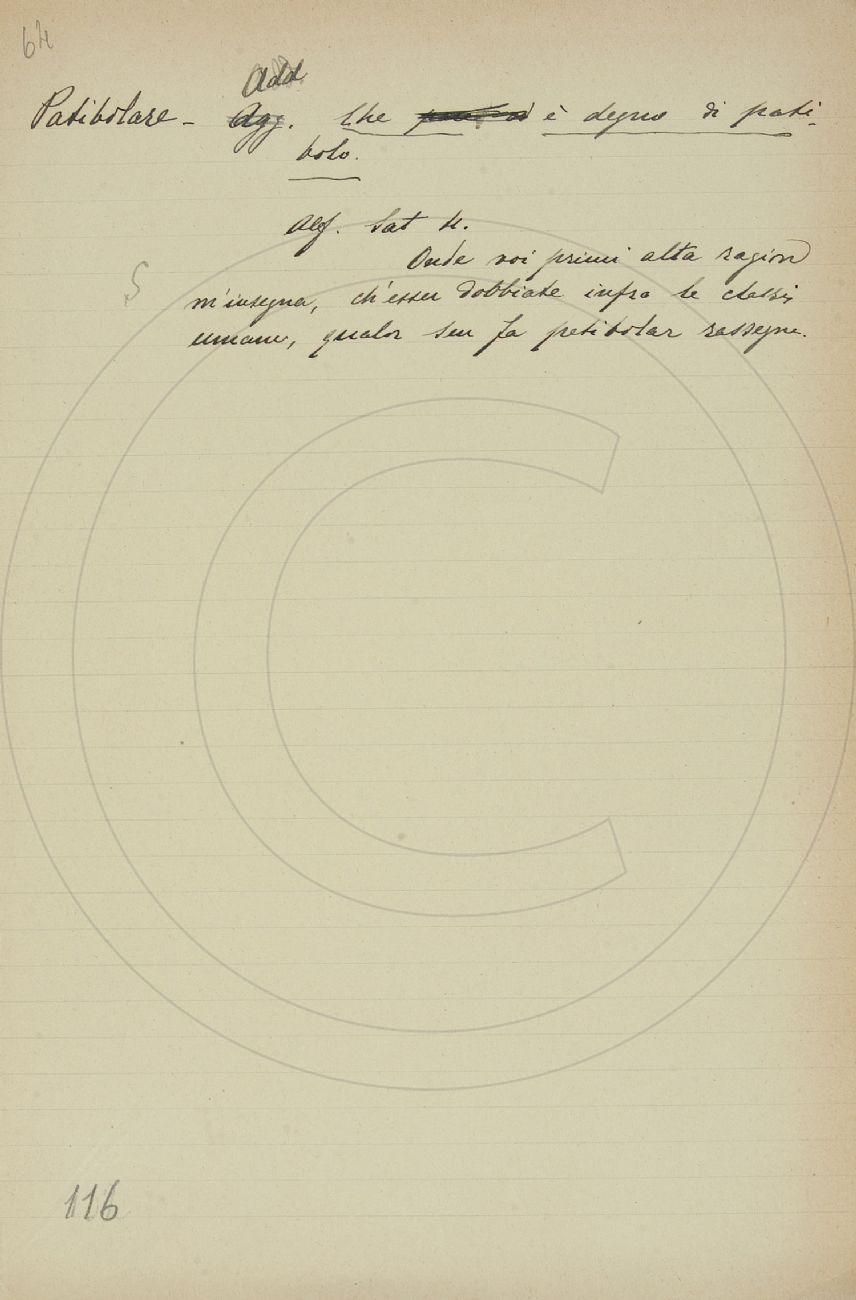 64
Add
Patibolare - Agg. Che è degno di pati-
bolo.
Alf. Sat 4.
Onde voi primi alta ragion
S
m'insegna, ch'esser dobbiate infra le classi
umane, qualor sen fa patibolar rassegna.
116